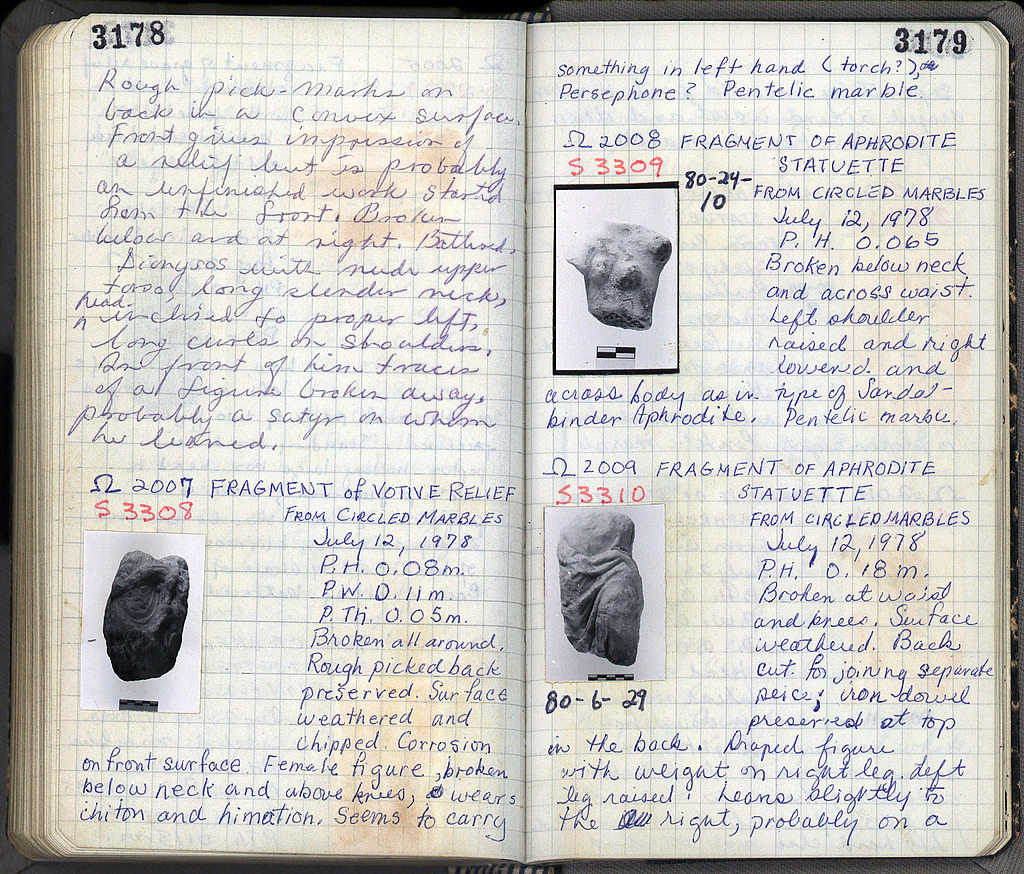 3178
Rough pick-marks on
back in a convex surface.
Front gives impression of
a relief but is probably
an unfinished work started
from the front. Broken
below and at right. Battered.
Dionysos with nude upper
torso, long slender neck,
head inclined to proper left,
long curls on shoulders.
In front of him traces
of a figure broken away,
probably a satyr on whom
he leaned.
Ω 2007 FRAGMENT of VOTIVE RELIEF
S 3308
FROM CIRCLED MARBLES
July 12, 1978
P.H. 0.08m.
P.W. 0.11m.
P.Th. 0.05m.
Broken all around.
Rough picked back
preserved. Surface
weathered and
chipped. Corrosion
on front surface. Female figure, broken
below neck and above knees, wears
chiton and himation. Seems to carry
3179
something in left hand (torch?),
Persephone? Pentelic marble.
Ω 2008 FRAGMENT OF APHRODITE
S 3309
STATUETTE
80-24-
10
FROM CIRCLED MARBLES
July 12, 1978
P. H. 0.065
Broken below neck
and across waist.
Left shoulder
raised and right
lowered and
across body as in type of Sandal-
binder Aphrodite. Pentelic marble.
Ω 2009 FRAGMENT OF APHRODITE
S 3310
STATUETTE
FROM CIRCLED MARBLES
July 12, 1978
P.H. 0.18 m.
Broken at waist
and knees. Surface
weathered. Back
cut for joining separate
peice; iron dowel
preserved at top
80-6-29
in the back. Draped figure
with weight on right leg. Left
leg raised. Leans slightly to
the right, probably on a